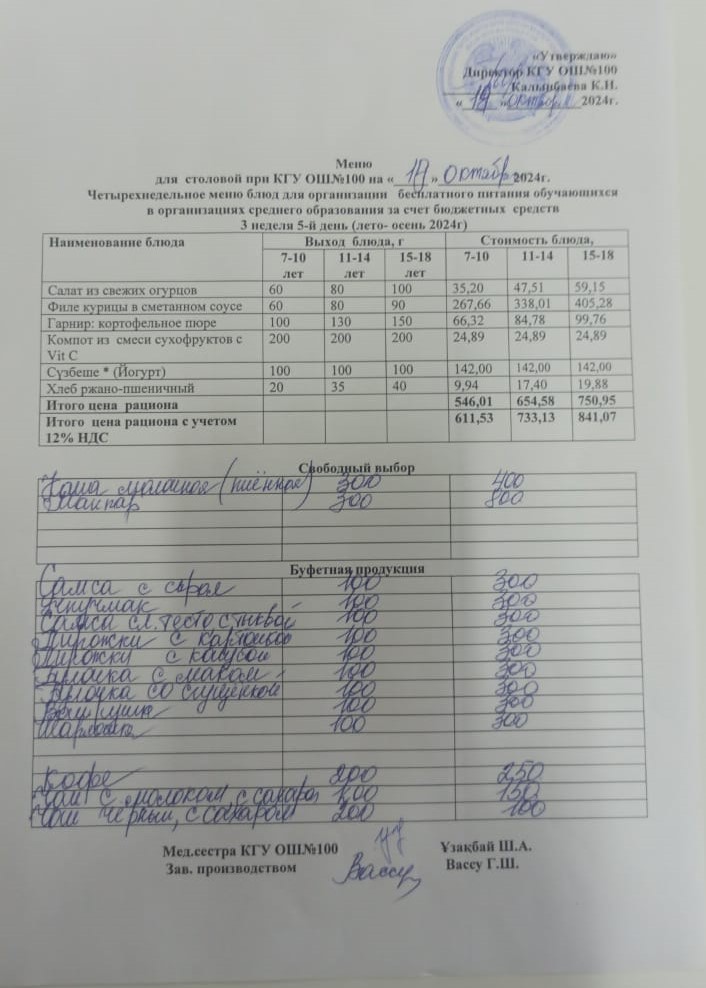 «Утверждаю»
Директор КГУ ОШ№100
Калынбаева К.Н.
« 19 » октября 2024г.
Меню
для столовой при КГУ ОШ№100 на « » октябр 2024г.
Четырехнедельное меню блюд для организации бесплатного питания обучающихся
в организациях среднего образования за счет бюджетных средств
3 неделя 5-й день (лето- осень 2024г)
Наименование блюда Выход блюда, г Стоимость блюда,
7-10 лет 11-14 лет 15-18 лет 7-10 11-14 15-18
Салат из свежих огурцов 60 80 100 35,20 47,51 59,15
Филе курицы в сметанном соусе 60 80 90 267,66 338,01 405,28
Гарнир: кортофельное пюре 100 130 150 66,32 84,78 99,76
Компот из смеси сухофруктов с Vit C 200 200 200 24,89 24,89 24,89
Сүзбеше * (Йогурт) 100 100 100 142,00 142,00 142,00
Хлеб ржано-пшеничный 20 35 40 9,94 17,40 19,88
Итого цена рациона 546,01 654,58 750,95
Итого цена рациона с учетом 12% НДС 611,53 733,13 841,07
Свободный выбор
Каша молочная (пшённая) 300 400
300 800
Буфетная продукция
Самса с сыром 100 300
100 300
Самса сл. тесто с 100 300
Пирожки с картошкой 100 300
Пирожки с капустой 100 300
Булочка с маком 100 300
Булочка со сгущенкой 100 300
Ватрушка 100 300
Шарлотка 100 300
Кофе 200 250
Чай с молоком, с сахаром 200 150
Чай черный, с сахаром 200 100
Мед.сестра КГУ ОШ№100 Ұзақбай Ш.А.
Зав. производством Вассу Вассу Г.Ш.